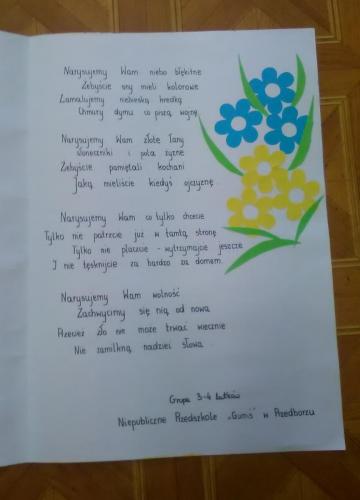 Narysujemy Wam niebo błękitne
Żebyście sny mieli kolorowe
Zamalujemy niebieską kredką
Chmury dymu co piszą wojnę
Narysujemy Wam złote łany
słoneczniki i pola żyzne
Żebyście pamiętali kochani
Jaką mieliście kiedyś ojczyznę
Narysujemy Wam co tylko chcecie
Tylko nie patrzcie już w tamtą stronę
Tylko nie płaczcie - wytrzymajcie jeszcze
I nie tęsknijcie za bardzo za domem.
Narysujemy Wam wolność
Zachwycimy się nią od nowa
Przecież zło nie może trwać wiecznie
Nie zamilkną nadziei słowa
Grupa 3-4 latków
Niepubliczne Przedszkole „Gumiś" w Przedborzu